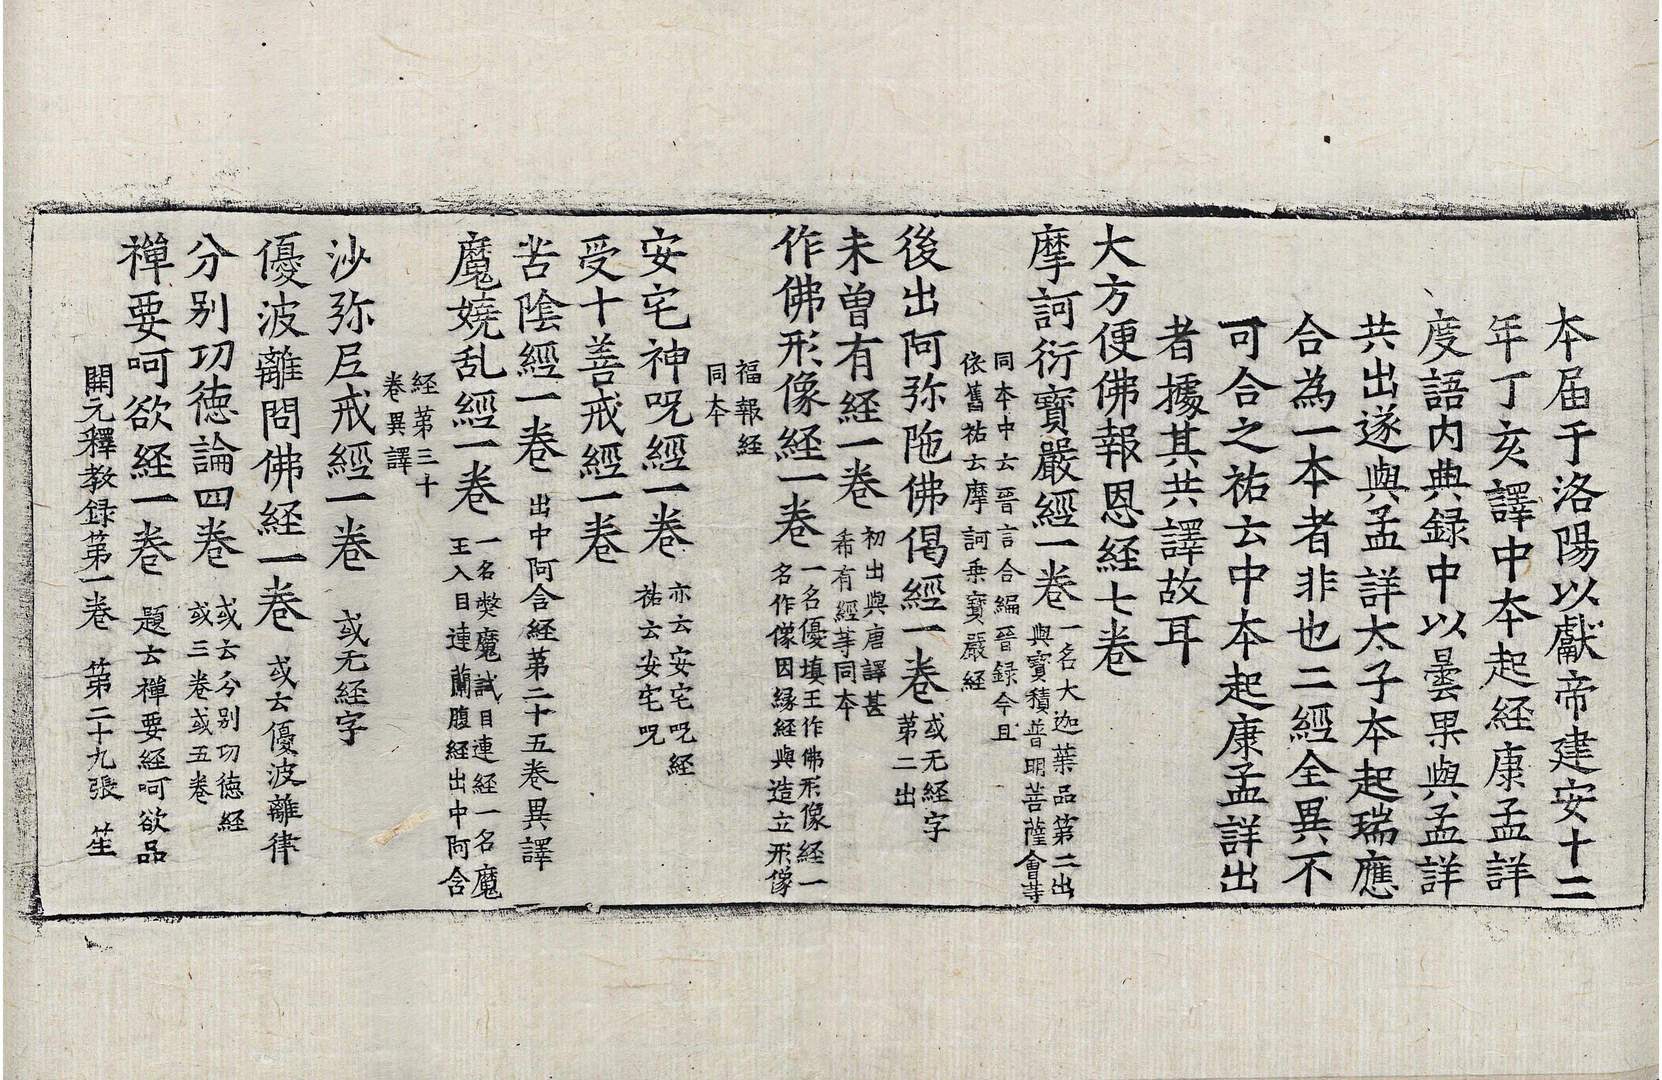 本届于洛陽以獻帝建安十二
年丁亥譯中本起經康孟詳
度語内典録中以曇果與孟詳
共出遂與孟詳太子本起瑞應
合為一本者非也二經全異不
可合之祐云中本起康孟詳出
者據其共譯故耳
大方便佛報恩経七巻
摩訶衍寶嚴經一巻一名大迦葉品第二出
與寶積普明菩薩會等
同本中云晉言合編晉録今且
依舊祐云摩訶乗寶嚴経
後出阿弥陁佛偈經一巻或无経字
第二出
未曽有経一巻初出與唐譯甚
希有經等同本
作佛形像経一巻一名優填王作佛形像経一
名作像因縁経與造立形像
福報経
同本
安宅神呪經一巻亦云安宅呪経
祐云安宅呪
受十善戒經一巻
苦陰經一巻出中阿含経第二十五巻異譯
魔嬈乱經一巻一名弊魔試目連経一名魔
王入目連蘭腹経出中阿含
経第三十
巻異譯
沙弥尼戒經一巻或无経字
優波離問佛経一巻或云優波離律
分别功徳論四巻或云分别功徳経
或三巻或五巻
禅要呵欲経一巻題云禅要経呵欲品
開元釋教録第一巻 第二十九張 笙